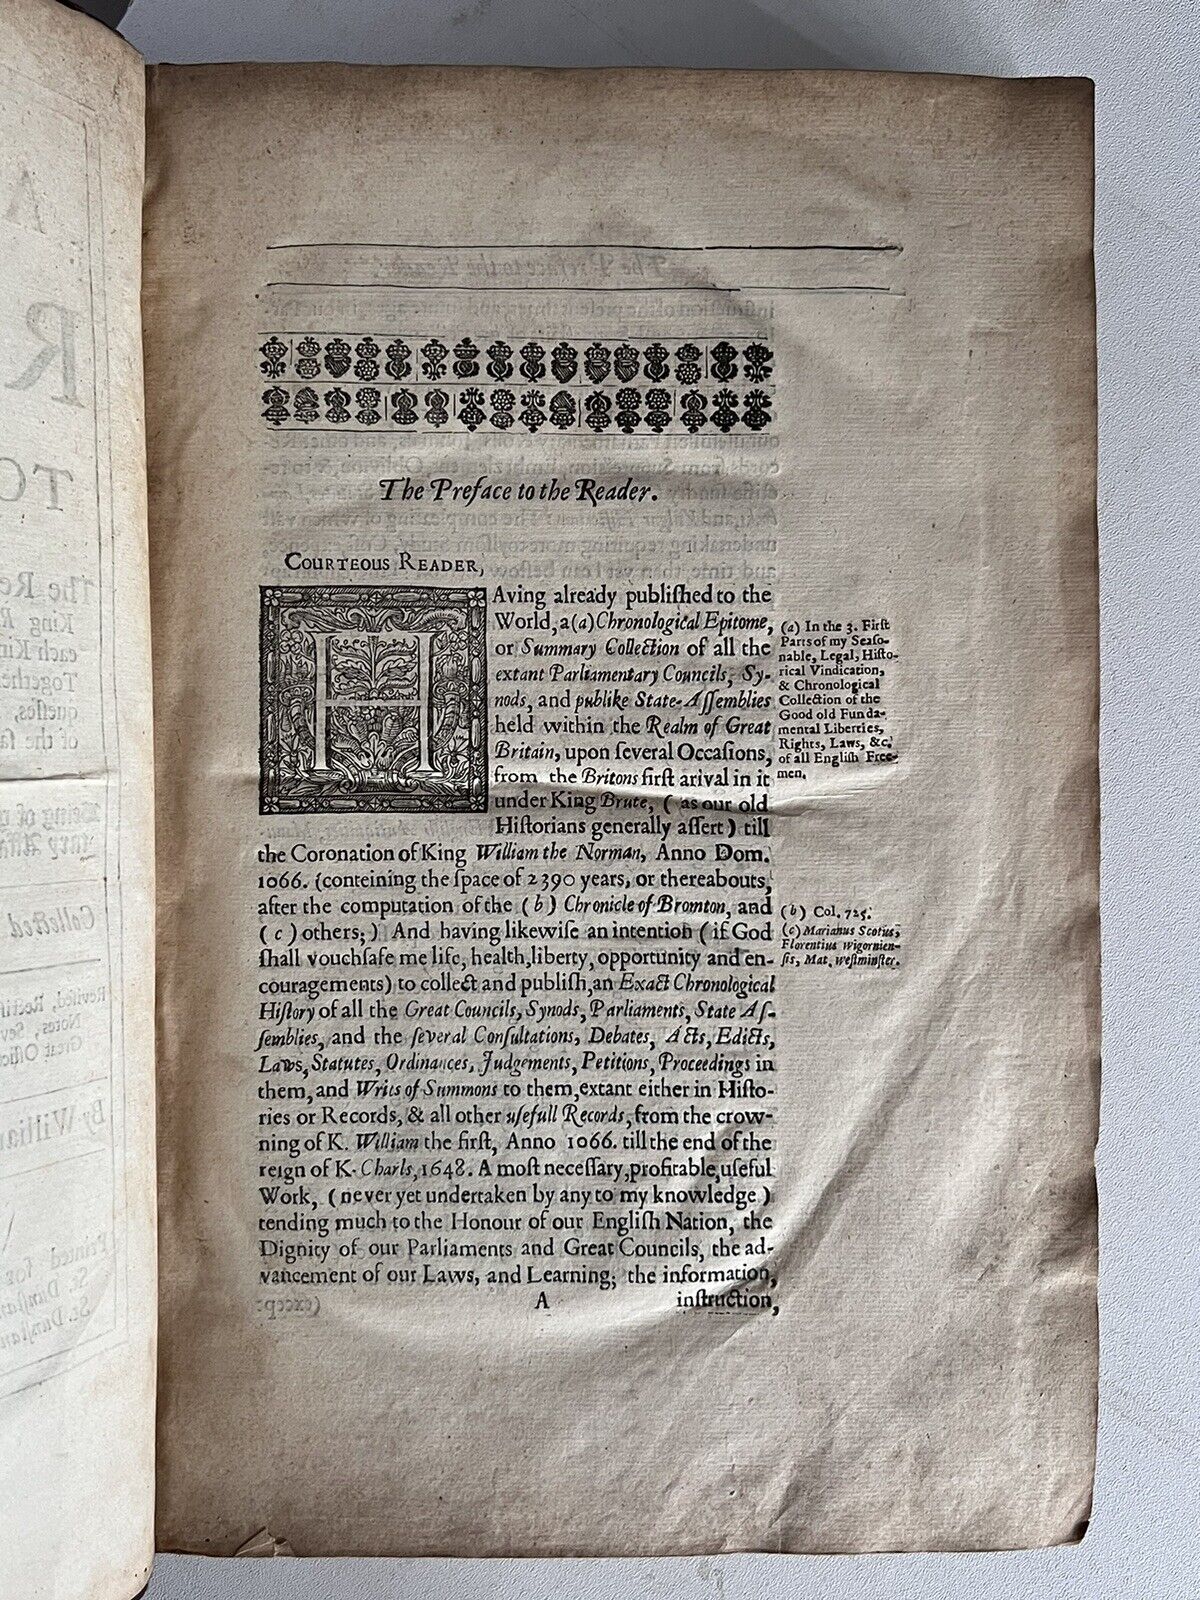 The Preface to the Reader.
COURTEOUS READER,
HAving already publiſhed to the
World, a (a) Chronological Epitome,
or Summary Collection of all the
extant Parliamentary Councils, Sy-
nods, and publike State-Aſſemblies
held within the Realm of Great
Britain, upon ſeveral Occaſions,
from the Britons firſt arival in it
under King Brute, (as our old
Hiſtorians generally aſſert) till
the Coronation of King William the Norman, Anno Dom.
1066. (conteining the ſpace of 2390 years, or thereabouts,
after the computation of the (b) Chronicle of Bromton, and
(c) others;) And having likewiſe an intention (if God
ſhall vouchſafe me life, health, liberty, opportunity and en-
couragements) to collect and publiſh, an Exact Chronological
Hiſtory of all the Great Councils, Synods, Parliaments, State Aſ-
ſemblies, and the ſeveral Conſultations, Debates, Acts, Edicts,
Laws, Statutes, Ordinances, Judgements, Petitions, Proceedings in
them, and Writs of Summons to them, extant either in Hiſto-
ries or Records, & all other uſefull Records, from the crow-
ning of K. William the firſt, Anno 1066. till the end of the
reign of K. Charls, 1648. A moſt neceſſary, profitable, uſeful
Work, (never yet undertaken by any to my knowledge)
tending much to the Honour of our Engliſh Nation, the
Dignity of our Parliaments and Great Councils, the ad-
vancement of our Laws, and Learning; the information,
A
inſtruction,
(a) In the 3. Firſt
Parts of my Seaſo-
nable, Legal, Hiſto-
rical Vindication,
& Chronological
Collection of the
Good old Funda-
mental Liberties,
Rights, Laws, &c.
of all Engliſh Free-
men.
(b) Col. 725.
(c) Marianus Scotus,
Florentius Wigornien-
ſis, Mat. Weſtminſter.